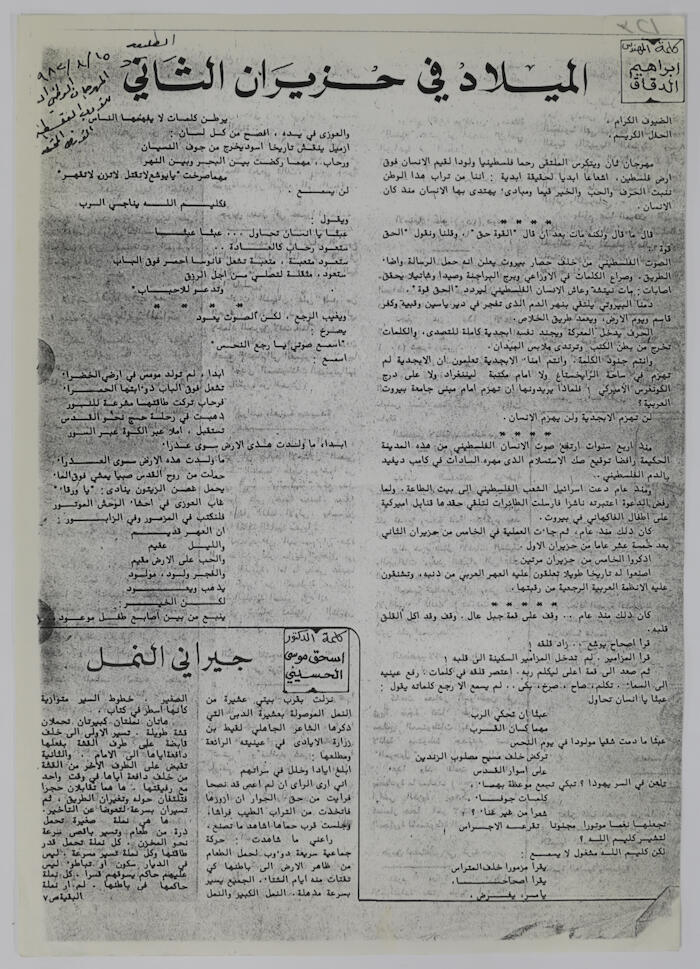 الطليعة
كلمة المهندس
ابراهيم
الدقاق
الميلاد في حزيران الثاني
الضيوف الكرام ،
الحفل الكريم ،
مهرجان ثان ويتكرس الملتقى رحما فلسطينيا ولودا لقيم الانسان فوق
ارض فلسطين ، اشعاعا ابديا لحقيقة ابدية : اننا من تراب هذا الوطن
نثبت الحرف والحب والخير قيما ومبادئ يهتدى بها الانسان منذ كان
الانسان .
* * * *
قال ما قال ولكنه مات بعد ان قال "القوة حق" ، وقلنا ونقول "الحق
قوة" .
الصوت الفلسطيني من خلف حصار بيروت يعلن اتم حمل الرسالة واضاء
الطريق . وصراع الكلمات في الاوزاعي وبرج البراجنة وصيدا وشاتيلا يحقق
اصابات : مات نيتشة وعاش الانسان الفلسطيني ليردد "الحق قوة" .
دمنا البيروتي يلتقي بنهر الدم الذى تفجر في دير ياسين وقبية وكفر
قاسم ويوم الارض ، ويعمد طريق الخلاص .
الحرف يدخل المعركة ويجند نفسه ابجدية كاملة للتصدى ، والكلمات
تخرج من بطن الكتب وترتدى ملابس الميدان .
وانتم جنود الكلمة : وانتم امناء الابجدية تعلمون ان الابجدية لم
تهزم في ساحة الرايخستاغ ولا امام مكتبة لينينغراد ولا على درج
الكونغرس الاميركي ! فلماذا يريدونها ان تهزم امام مبنى جامعة بيروت
العربية ؟
لن تهزم الابجدية ولن يهزم الانسان .
* * * *
منذ اربع سنوات ارتفع صوت الانسان الفلسطيني من هذه المدينة
الحكيمة رافضا توقيع صك الاستسلام الذى مهره السادات في كامب ديفيد
بالدم الفلسطيني ..
ومنذ عام دعت اسرائيل الشعب الفلسطيني الى بيت الطاعة . ولما
رفض الدعوة اعتبرته ناشزا فارسلت الطائرات لتلقي حقدها قنابل اميركية
على اطفال الفاكهاني في بيروت .
كان ذلك منذ عام ، ثم جاءت العملية في الخامس من حزيران الثاني
بعد خمسة عشر عاما من حزيران الاول .
اذكروا الخامس من حزيران مرتين .
اصنعوا له تاريخا طويلا تعلقون عليه العهر العربي من ذنبه ، وتشنقون
عليه الانظمة العربية الرجعية من رقبتها .
* * * *
كان ذلك منذ عام .. وقف على قمة جبل عال . وقف وقد اكل القلق
قلبه .
قرأ اصحاح يوشع .. زاد قلقه !
قرأ المزامير . لم تدخل المزامير السكينة الى قلبه !
ثم صعد الى قمة اعلى ليكلم ربه . اعتصر قلقه في كلمات . رفع عينيه
الى السماء . تكلم، صاح ، صرخ، بكى .. لم يسمع الا رجع كلماته يقول :
عبثا يا انسان تحاول
عبثا ان تحكي الرب
مهما كان القرب
عبثا ما دمت شقيا مولودا في يوم النحس
تركض خلف مسيح مصلوب الزندين
على اسوار القدس
تلعن في السر يهوذا ؟ تبكي تجمع موعظة بهماء .
كلمات جوفاء .
شعرا من غير غناء ؟
تجعلها نغما موتورا مجنونا تقرعه الاجراس
لتشير كليم الله ؟
لكن كليم الله مشغول لا يسمع :
يقرأ مزمورا خلف المتراس
يقرأ اصحاحا
يامر، يفرض ،
يرطن كلمات لا يفهمها الناس
والعوزى في يده ، افصح من كل لسان :
ازميل ينقش تاريخا اسود يخرج من جوف النسيان
ورحاب ، مهما ركضت بين البحر وبين النهر
مهما صرخت "يا يوشع لا تقتل لا تزن لا تقهر"
لن يسمع .
فكليم الله يناجي الرب
ويقول :
عبثا يا انسان تحاول ... عبثا عبثا
ستعود رحاب كالعادة ..
ستعود متعبة ، متعبة تشعل فانوسا احمر فوق الباب
ستعود ، مثقلة لتصلي من اجل الرزق
وتدعو للاحباب"
* * * *
ويغيب الرجع ، لكن الصوت يعود
يصرخ :
"اسمع صوتي يا رجع النحس"
اسمع :
ابدا ، لم تولد مومس في ارضي الخضراء
تشعل فوق الباب ذؤابتها الحمراء
فرحاب تركت طاقتها مشرعة للنور
ذهبت في رحلة حج نحو القدس
تستقبل ، املا عبر الكوة عبر السور
ابدا ، ما ولدت هذى الارض سوى عذراء
ما ولدت هذه الارض سوى العذراء
حملت من روح القدس صبيا يمشي فوق الماء
يحمل غصن الزيتون ينادى : "يا ورقاء"
غاب العوزى في احشاء الوحش الموتور
فلنكتب في المزمور وفي الزابور :
ان العهر قديم
والليل عقيم
والحب على الارض مقيم
والفجر ولود ، مولود
يذهب ويعود
لكن الخير
ينبع من بين اصابع طفل موعود
كلمة الدكتور
اسحق موسى
الحسيني
جيراني النمل
نزلت بقرب بيتي عشيرة من
النمل الموصولة بعشيرة الدبى التي
ذكرها الشاعر الجاهلي لقيط بن
زرارة الايادى في عينيته الرائعة
ومطلعها :
ابلغ ايادا وخلل في سراتهم
اني ارى الراى ان لم اعص قد نصحا
فرايت من حق الجوار ان ازورها
فاتخذت من التراب الطيب فراشا،
وجلست قرب حماها اشاهد ما تصنع .
راعني ما شاهدت : حركة
جماعية سريعة دؤوب لحمل الطعام
من ظاهر الارض الى باطنها كي
تقتات منه ايام الشتاء . الجميع يسير
بسرعة مذهلة . النمل الكبير والنمل
الصغير . خطوط السير متوازية
كأنها اسطر في كتاب .
هاتان نملتان كبيرتان تحملان
قشة طويلة . تسير الاولى الى خلف
قابضة على طرف القشة بفمها
دافعة اياها الى الامام .. والثانية
تقبض على الطرف الآخر من القشة
من خلف دافعة اياها في وقت واحد
مع رفيقتها . ها هما تقابلان حجرا
فتلتفان حوله وتغيران الطريق ، ثم
تسيران بسرعة لتعوضا عن التأخير .
ها هي نملة صغيرة تحمل
ذرة من طعام، وتسير باقصى سرعة
نحو المخزن . كل نملة تحمل قدر
طاقتها وكل نملة تسير مسرعة . ليس
في الديار سكون او تباطؤ ليس
عليهم حاكم يسوقهم قسرا . كل نملة
حاكمها في باطنها . لم ار نملة
البقية ص ٧